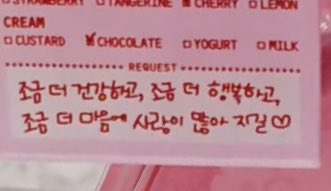 □ STRAWBERRY □ TANGERINE ■ CHERRY □ LEMON
CREAM
□ CUSTARD ☑ CHOCOLATE □ YOGURT □ MILK
REQUEST
조금 더 건강하고, 조금 더 행복하고,
조금 더 마음에 사랑이 많아 지길 ♡